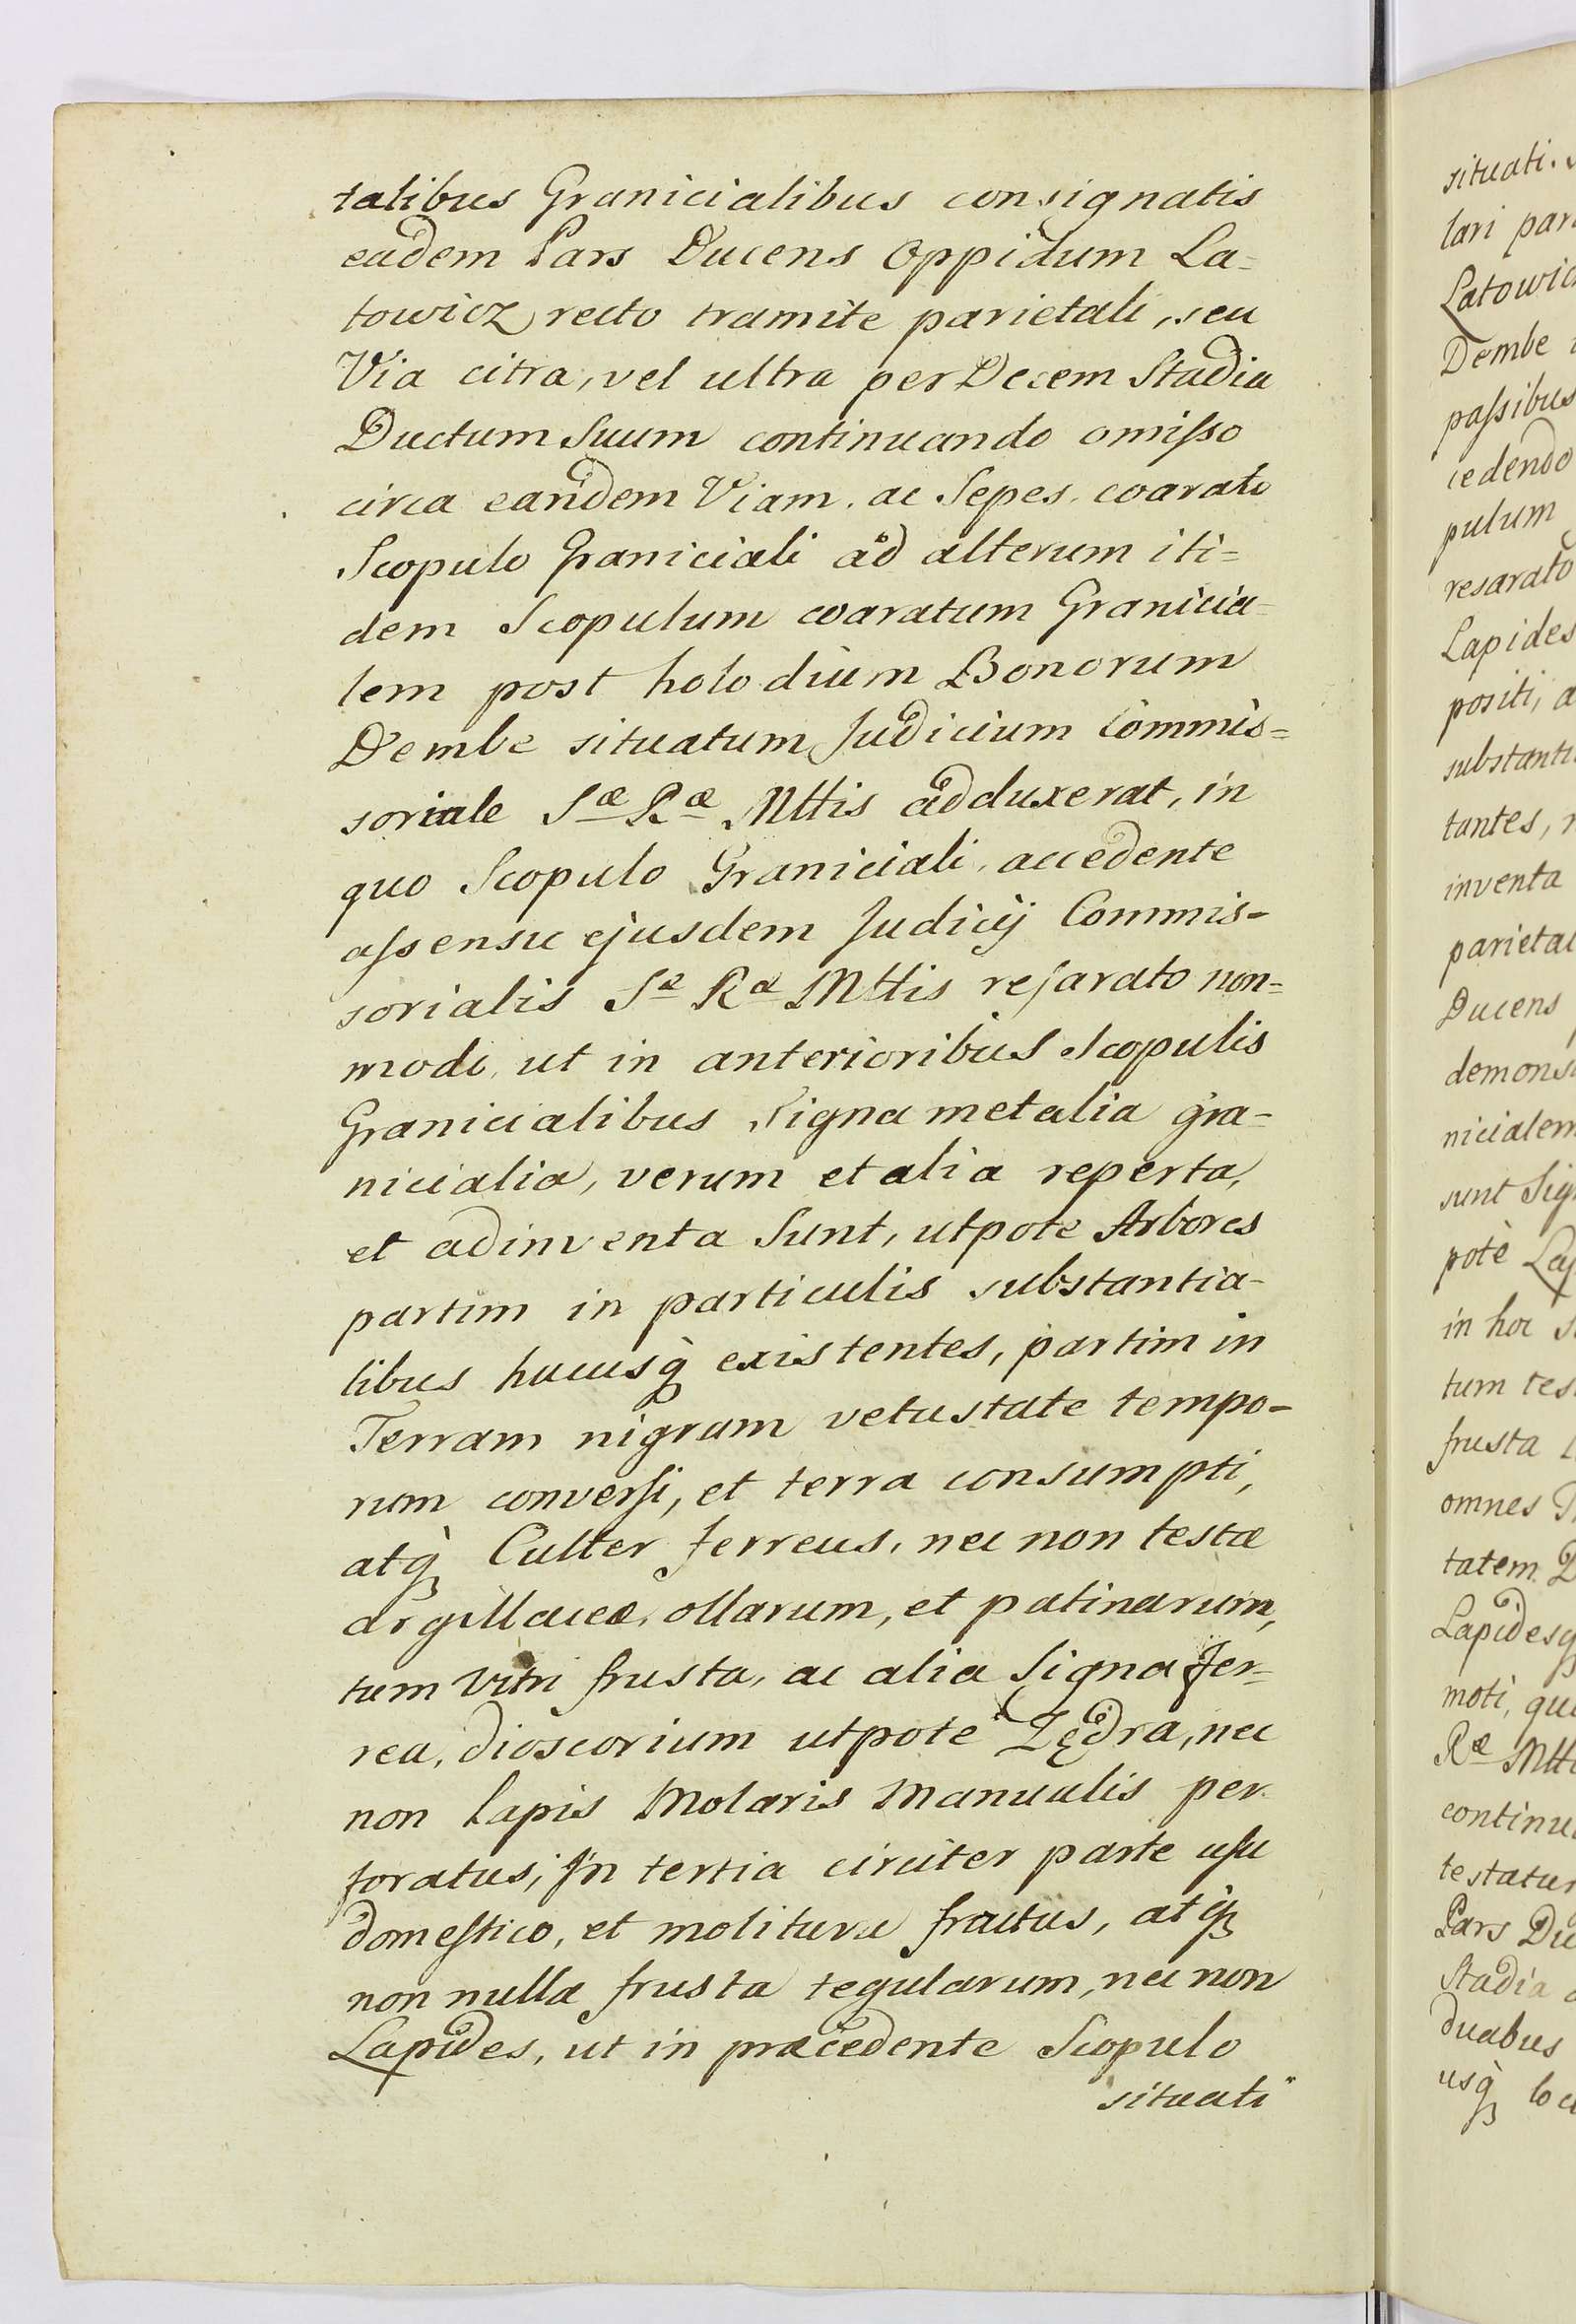 talibus Granicialibus consignatis
eadem Pars Ducens Oppidum La=
towicz recto tramite parietali, seu
Via citra, vel ultra per Decem Stadia
Ductum Suum continuando omiſso
circa eandem Viam, ac Sepes, coarato
Scopulo Graniciali ad alterum iti=
dem Scopulum coaratum Granicia=
lem post holodium Bonorum
Dembe situatum Judicium Commis=
soriale Sæ Ræ Mttis adduxerat, in
quo Scopulo Graniciali, accedente
aſsensu ejusdem Judicij Commis=
sorialis Sæ Ræ Mttis reſarato non=
modo, ut in anterioribus Scopulis
Granicialibus Signa metalia gra=
nicialia, verum et alia reperta,
et adinventa Sunt, utpote Arbores
partim in particulis substantia=
libus hucusq́ existentes, partim in
Terram nigram vetustate tempo=
rum converſi, et terra consumpti,
atq́ Culter ferreus, nec non testæ
argillaceæ, ollarum, et patinarum,
tum Vitri frusta, ac alia Signa fer=
rea, dioscorium utpote Zędra, nec
non Lapis Molaris Manualis per
foratus, In tertia circiter parte uſu
domeſtico, et molitura fractus, atq́
non nulla frusta tegularum, nec non
Lapides, ut in præcedente Scopulo
situati
situati.
lari par
Latowic
Dembe
paſsibus
cedendo
pulum
resarato
Lapides
positi, a
substanti
tantes,
inventa
parietal
Ducens
demons
nicialem
sunt Sig
pote Lap
in hoc s
tum tes
frusta
omnes
tatem
Lapidesq
moti, qu
Ræ Mtt
continu
testatur
Pars Du
Stadia
duabus
usq́ loc